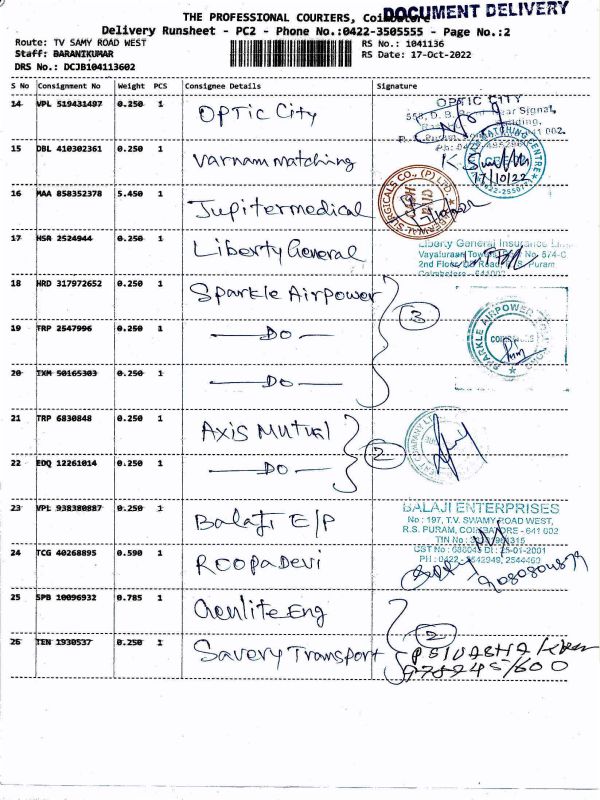 DOCUMENT DELIVERY
THE PROFESSIONAL COURIERS, Coimbatore
Delivery Runsheet - PC2 - Phone No.:0422-3505555 - Page No.:2
Route: TV SAMY ROAD WEST RS No.: 1041136
Staff: BARANIKUMAR RS Date: 17-Oct-2022
DRS No.: DCJB104113602
S No Consignment No Weight PCS Consignee Details Signature
14 VPL 519431497 0.250 1 Optic City
OPTIC CITY
15 DBL 410302361 0.250 1 Varnam Matching
17/10/22
16 MAA 858352378 5.450 1 Jupitermedical
17 HSR 2524944 0.250 1 Liberty General
Liberty General Insurance
2nd Floor, Road, R.S. Puram
18 HRD 317972652 0.250 1 Sparkle Airpower
3
SPARKLE AIRPOWER
19 TRP 2547996 0.250 1 — DO —
20 IXM 50165303 0.250 1 — DO —
21 TRP 6830848 0.250 1 Axis Mutual
2
22 EDQ 12261014 0.250 1 — DO —
23 VPL 938380887 0.250 1 Balaji E/P
BALAJI ENTERPRISES
No : 197, T.V. SWAMY ROAD WEST,
R.S. PURAM, COIMBATORE - 641 002
24 TCG 40268895 0.590 1 Roopa Devi
25 SPB 10096932 0.785 1 Genlite Eng
2
26 TEN 1930537 0.250 1 Savery Transport